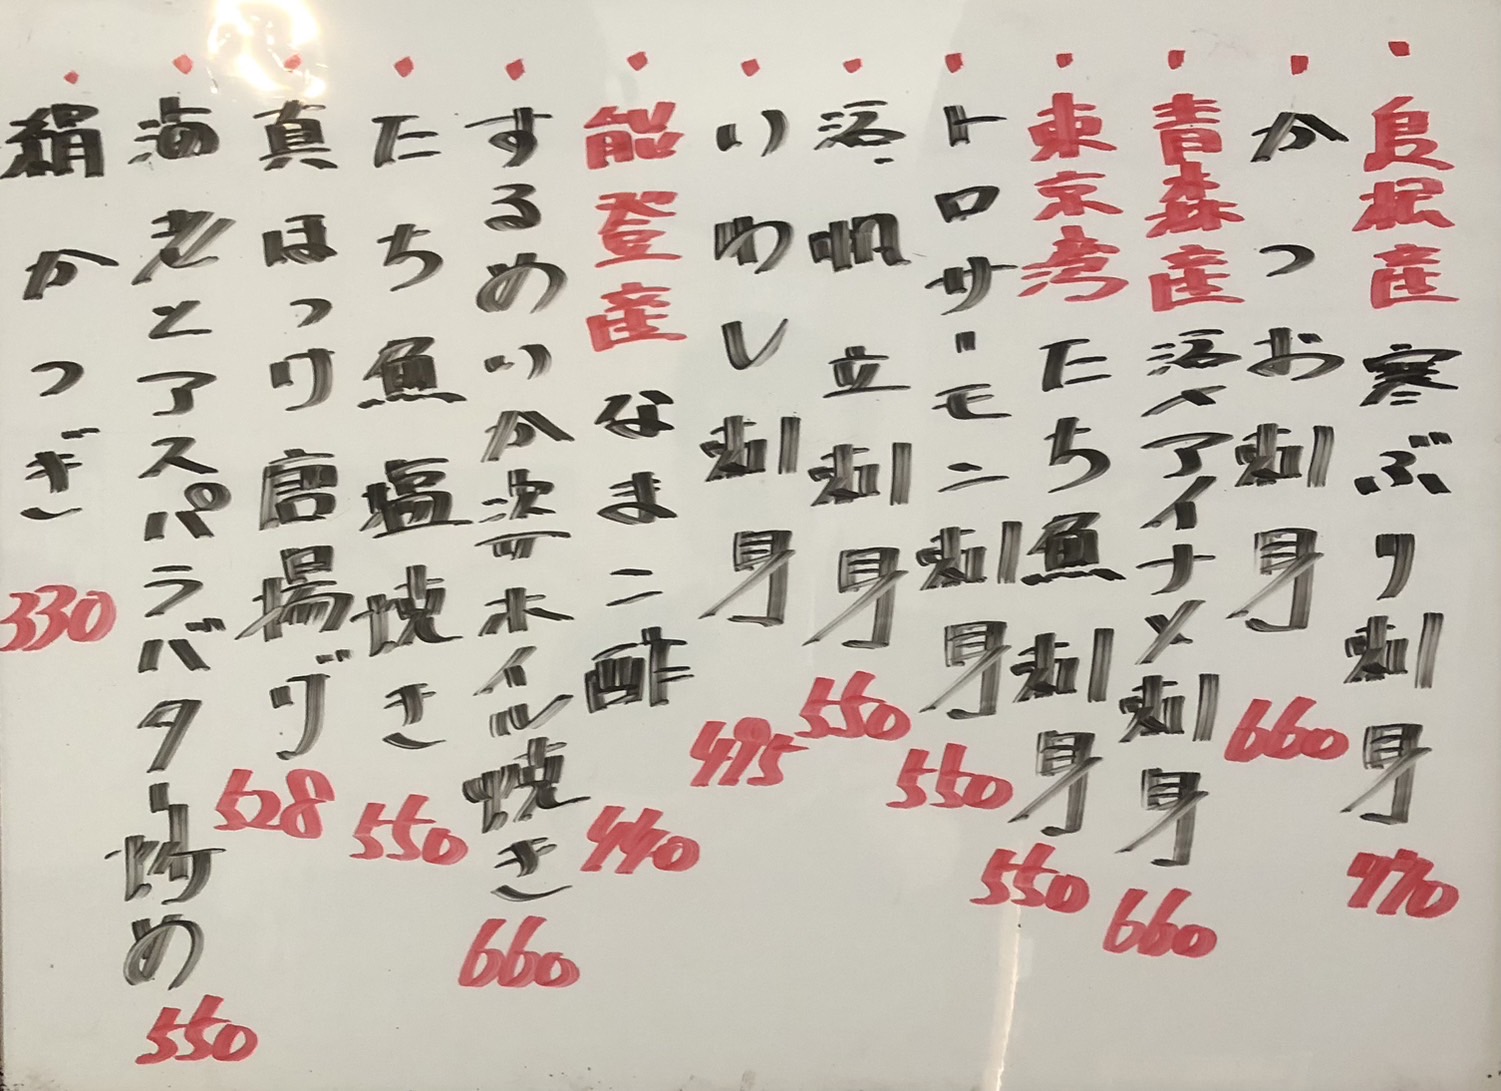 島根産寒ぶり刺身 770
かつお刺身 660
青森産活〆アイナメ刺身 660
東京湾たち魚刺身 550
トロサーモン刺身 550
活帆立刺身 550
いわし刺身 495
能登産なまこ酢 440
するめいか ホイル焼き 660
たち魚塩焼き 550
真ほっけ唐揚げ 528
海老とアスパラバター炒め 550
絹かつぎ 330